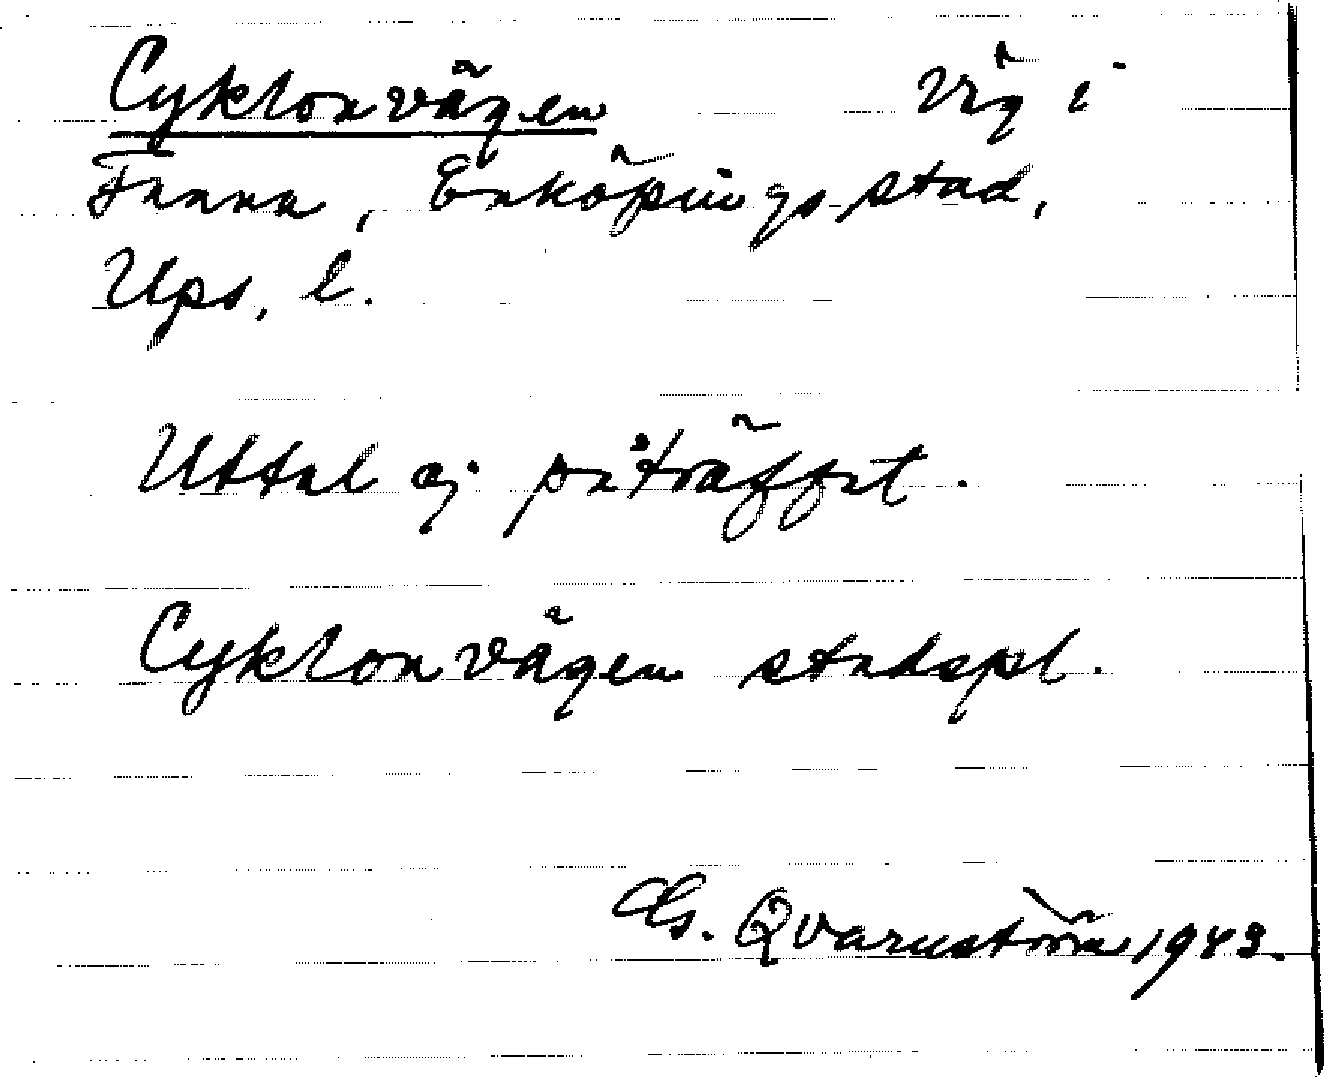 Cyklonvägen väg i
Fanna, Enköpings stad,
Ups. l.
Uttal ej påträffat.
Cyklonvägen stadspl.
G. Qvarnström 1983.